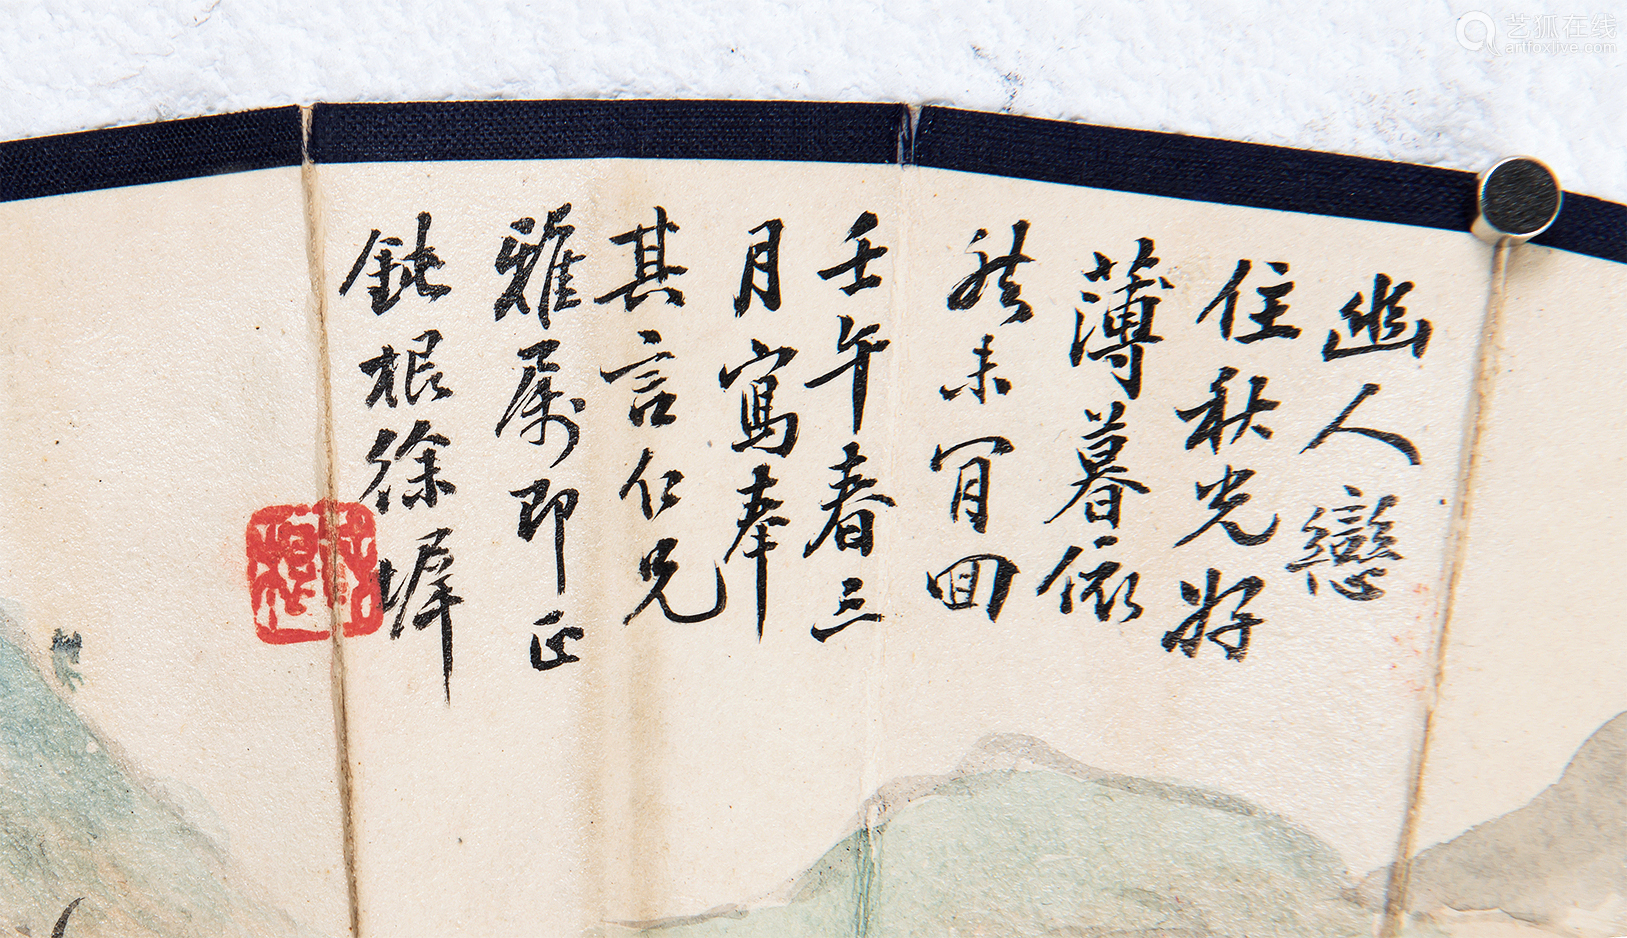 幽人戀
住秋光好
薄暮依
然未肎回
壬午春三
月寫奉
其言仁兄
雅属即正
鈍根徐墀
艺狐在线
artfoxlive.com